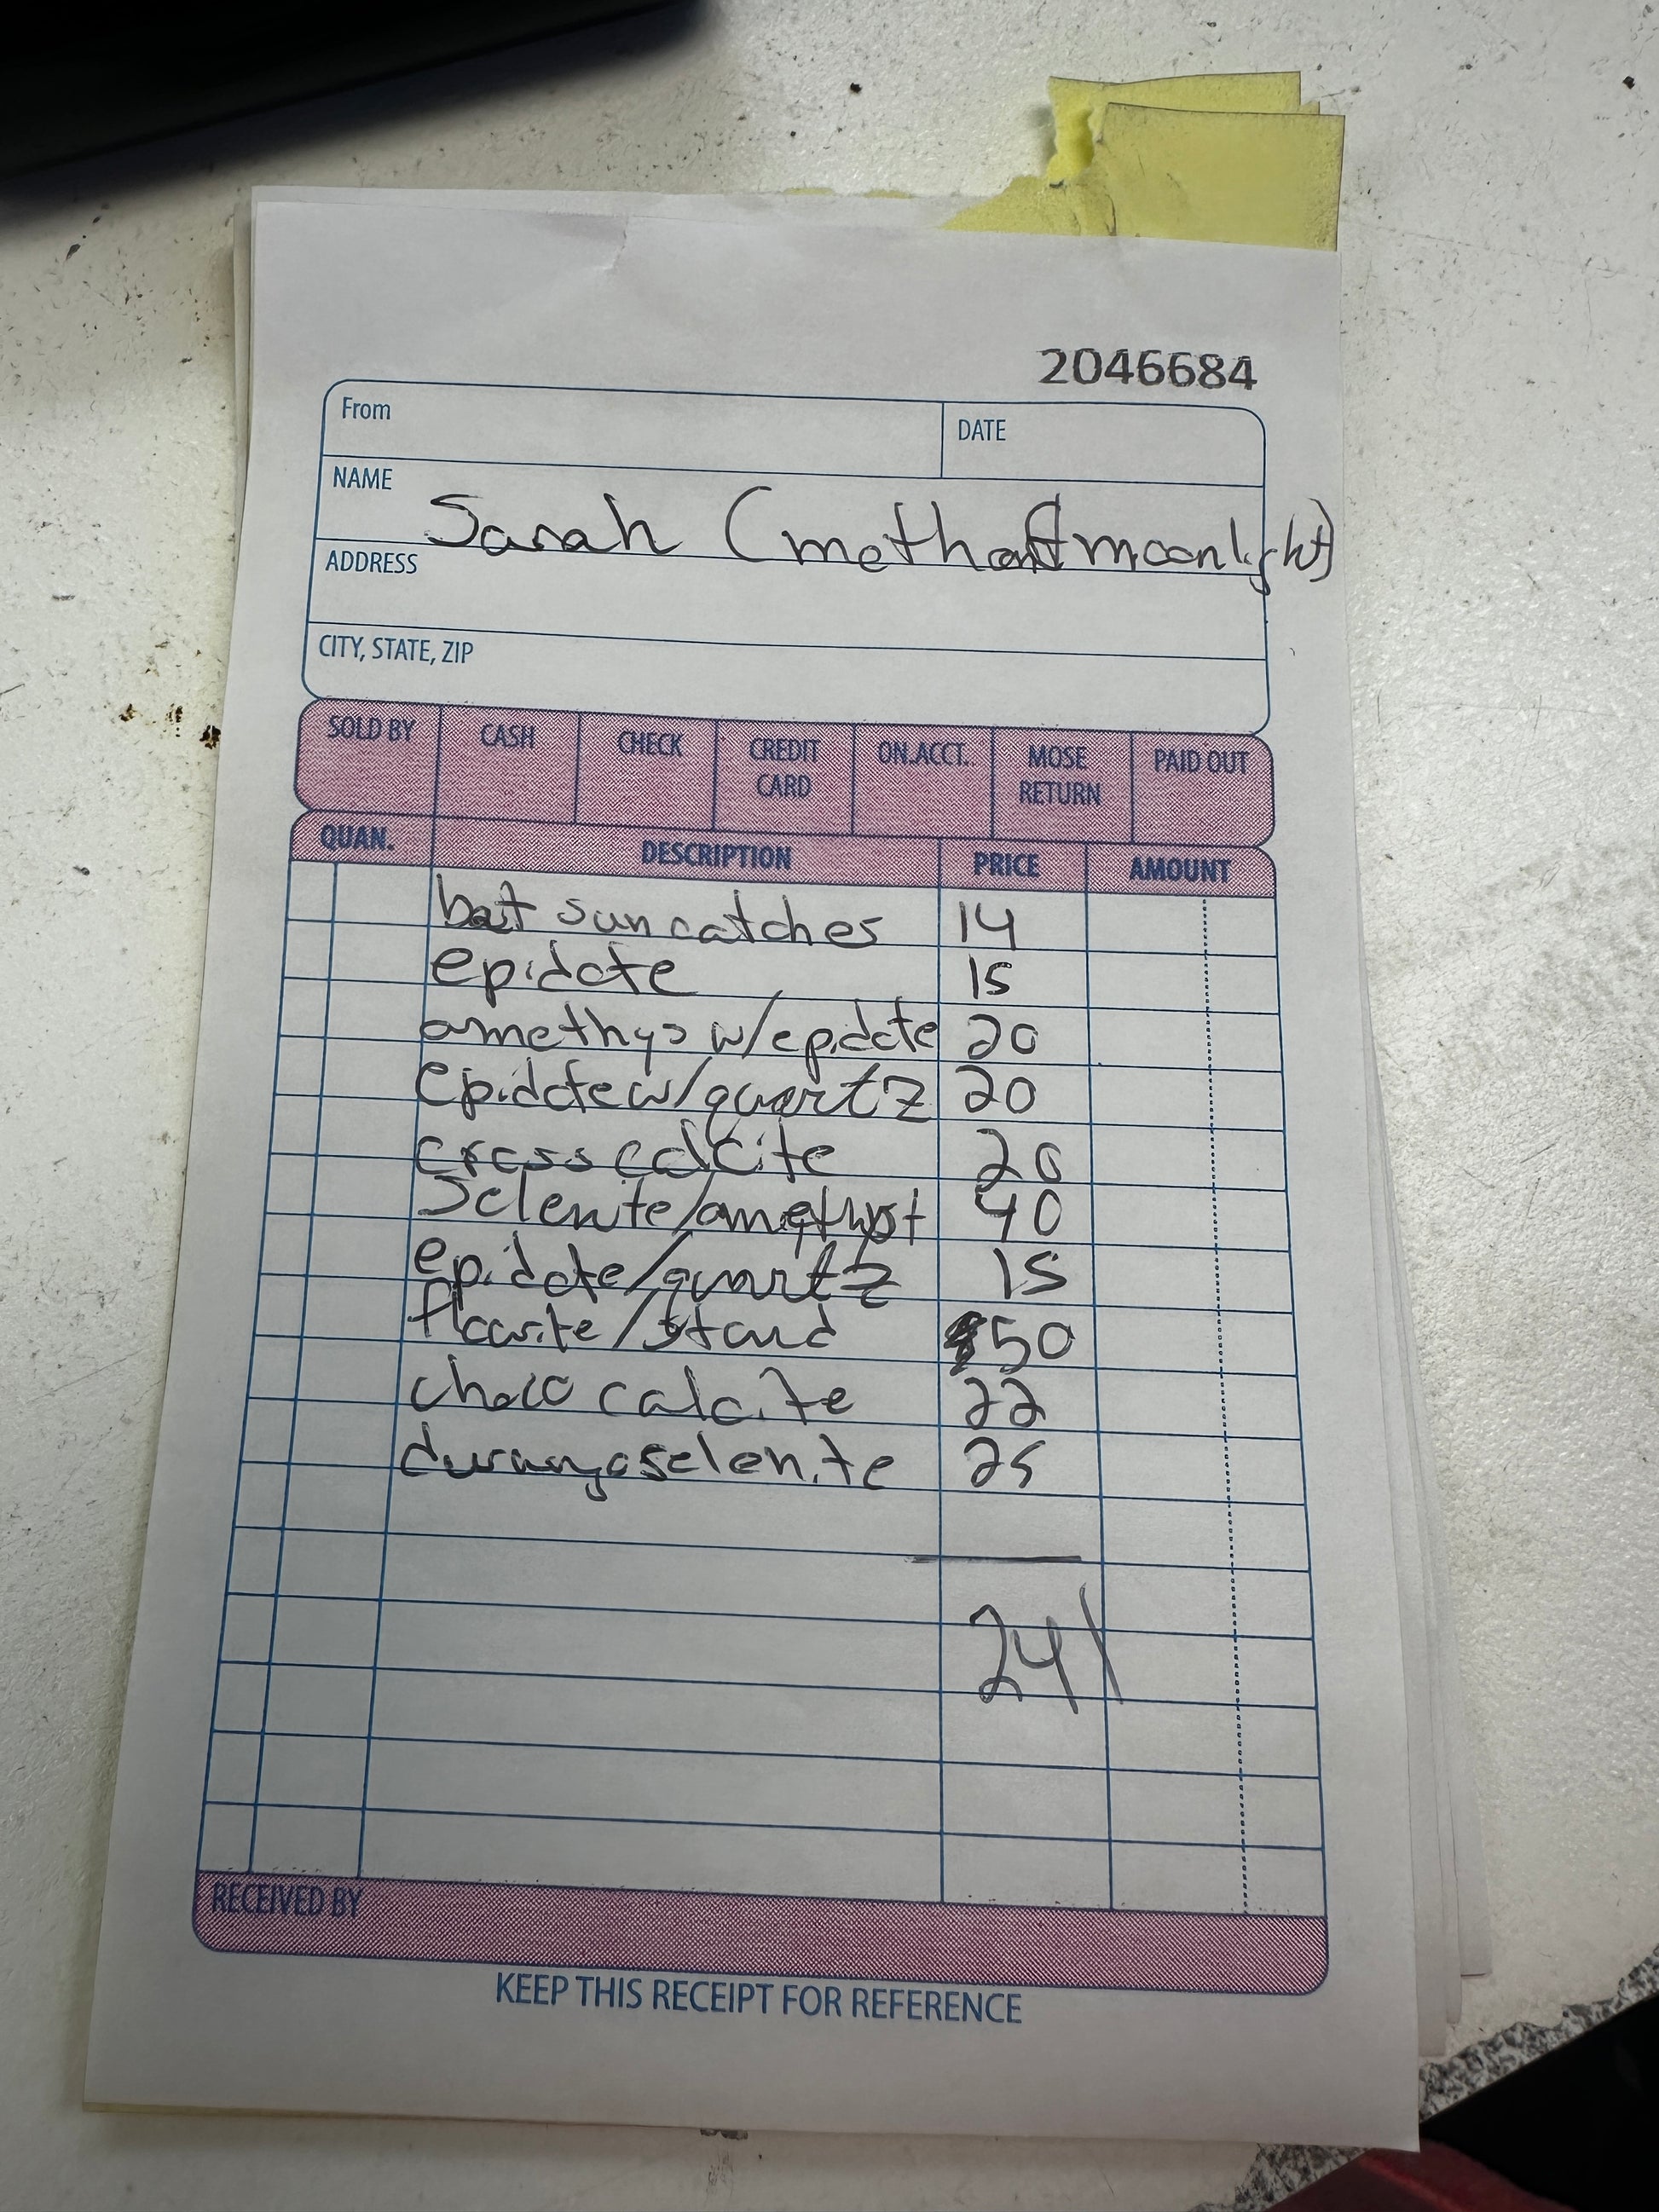 2046684
From
DATE
NAME
Sarah (mothofmoonlight)
ADDRESS
CITY, STATE, ZIP
SOLD BY CASH CHECK CREDIT CARD ON.ACCT. MOSE RETURN PAID OUT
QUAN. DESCRIPTION PRICE AMOUNT
bat suncatches 14
epidote 15
amethys w/epidote 20
epidote w/quartz 20
cross calcite 20
Selenite/amethyst 40
epidote/quartz 15
floorite/stand $50
choco calcite 22
durango selenite 25
241
RECEIVED BY
KEEP THIS RECEIPT FOR REFERENCE